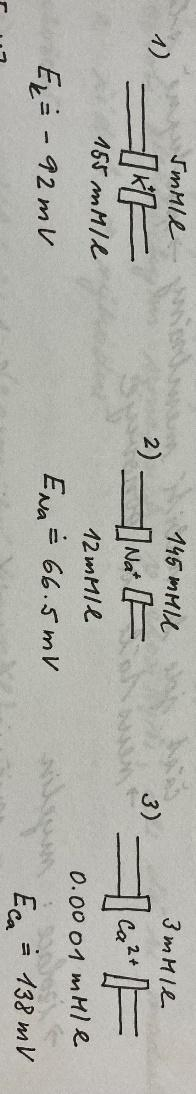 1)
5 mM/l
K+
155 mM/l
E_k ≐ - 92 mV
2)
145 mM/l
Na+
12 mM/l
E_Na ≐ 66.5 mV
3)
3 mM/l
Ca2+
0.0001 mM/l
E_Ca ≐ 138 mV